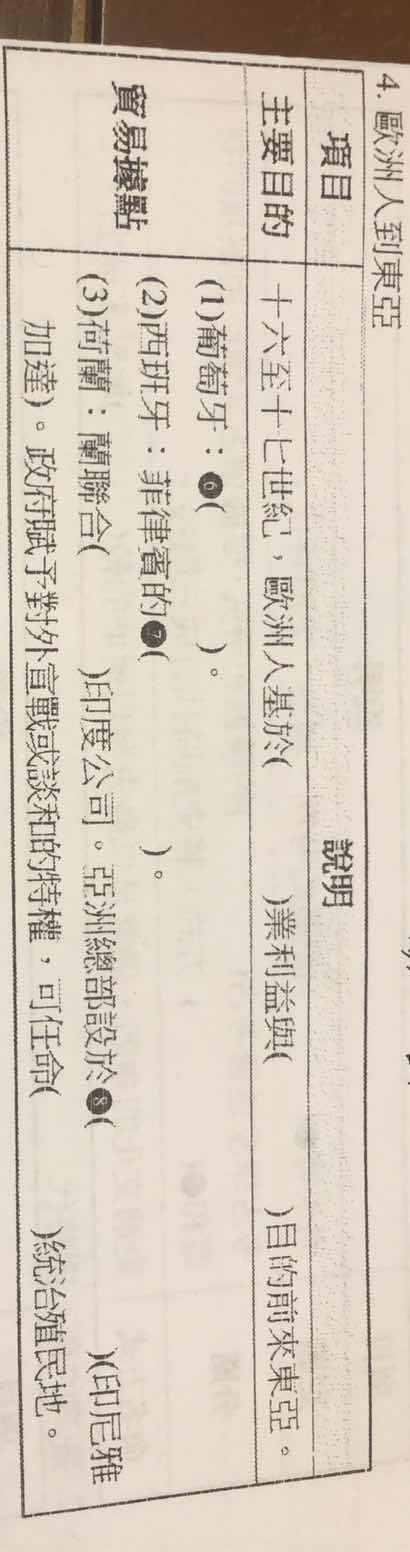 4. 歐洲人到東亞
項目 說明
主要目的 十六至十七世紀，歐洲人基於( )業利益與( )目的前來東亞。
貿易據點 (1)葡萄牙：❻( )。
(2)西班牙：菲律賓的❼( )。
(3)荷蘭：蘭聯合( )印度公司。亞洲總部設於❽( )(印尼雅
加達)。政府賦予對外宣戰或談和的特權，可任命( )統治殖民地。